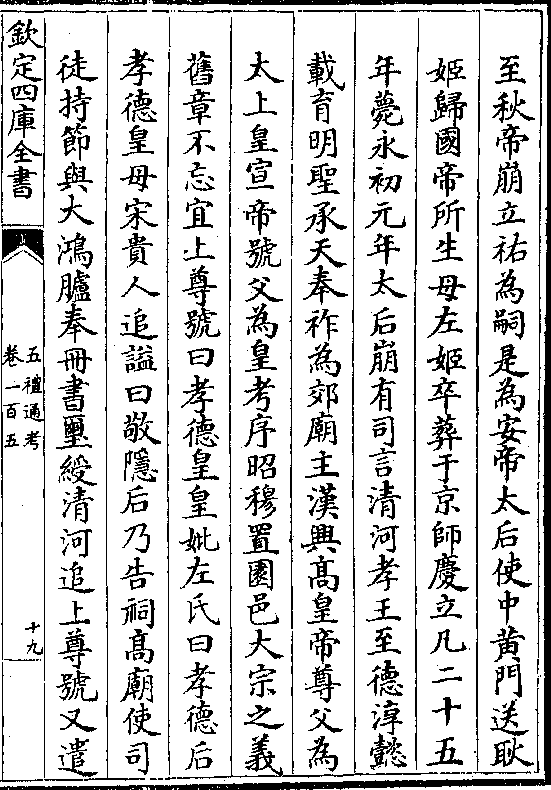 至秋帝崩立祐為嗣是為安帝太后使中黃門送耿
姬歸國帝所生母左姬卒葬于京師慶立凡二十五
年薨永初元年太后崩有司言清河孝王至德淳懿
載育明聖承天奉祚為郊廟主漢興髙皇帝尊父為
太上皇宣帝號父為皇考序昭穆置園邑大宗之義
舊章不忘宜上尊號曰孝德皇皇妣左氏曰孝德后
孝德皇母宋貴人追諡曰敬隱后乃告祠髙廟使司
徒持節與大鴻臚奉冊書璽綬清河追上尊號又遣
欽定四庫全書
五禮通考
卷一百五
十九